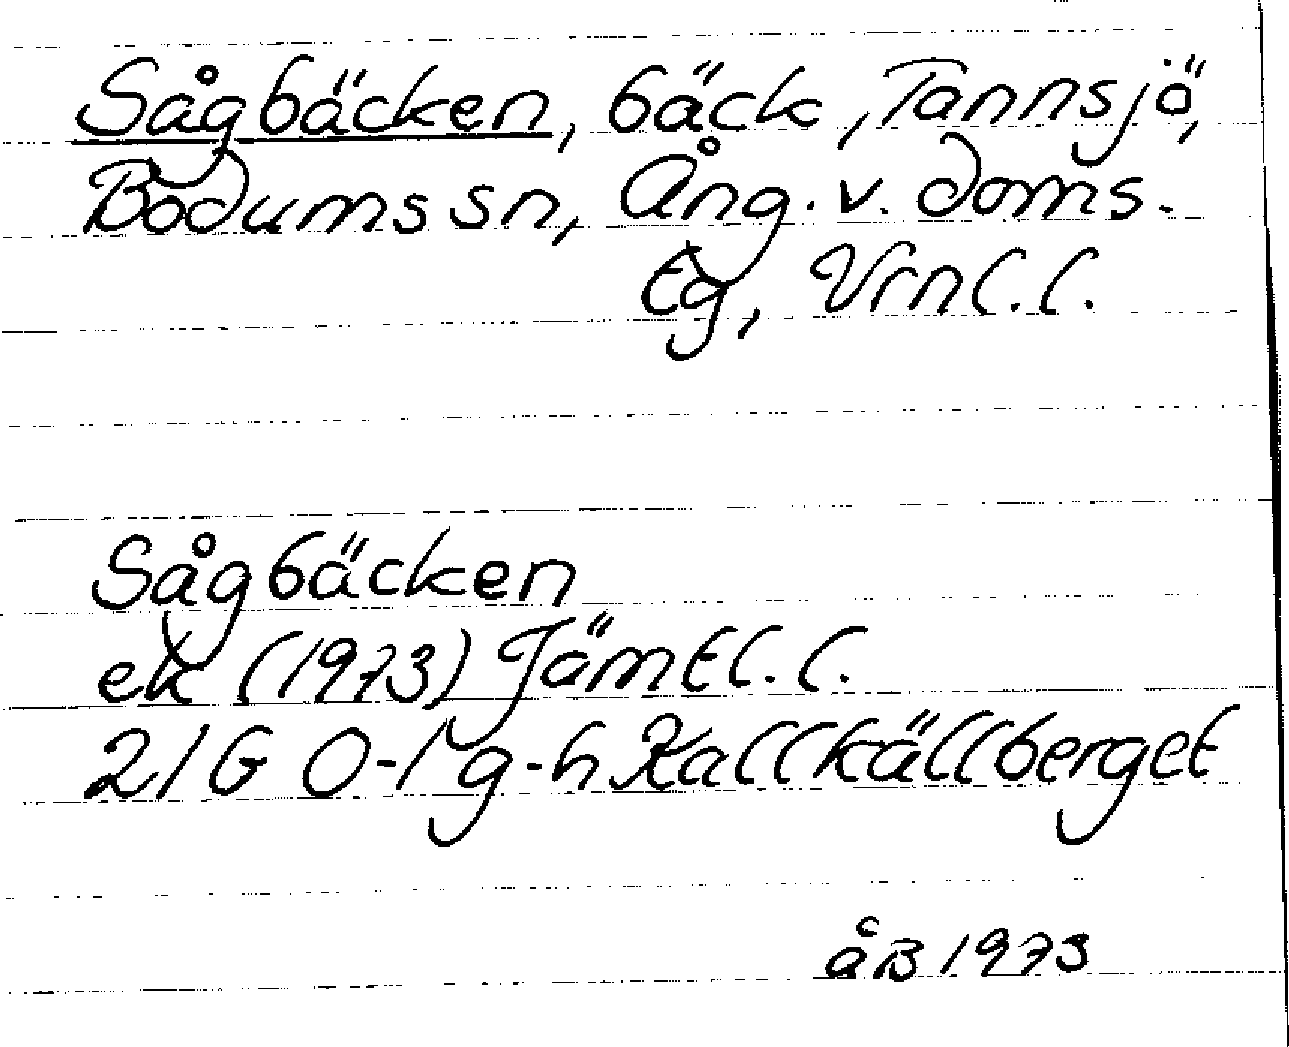 Sågbäcken, bäck, Tannsjö,
Bodums sn, Ång. v. doms.
tg, Vrnl. l.
Sågbäcken
ek (1973) Jämtl. l.
21G 0-1 g-h Kallkällberget
åB 1973